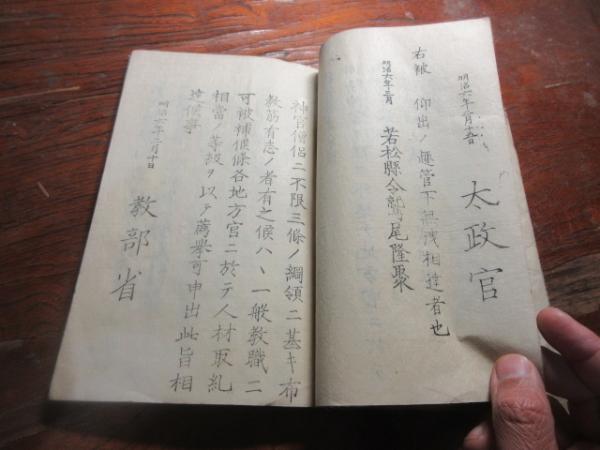 明治六年二月十五日
太政官
右被 仰出ノ趣管下無洩相達者也
明治六年三月
若松縣令鷲尾隆聚
神官僧侶ニ不限三條ノ綱領ニ基キ布
教筋有志ノ者有之候ハヽ一般教職ニ
可被補候條各地方官ニ於テ人材取糺
相當ノ等級ヲ以テ薦擧可申出此旨相
達候事
明治六年二月十日
教部省